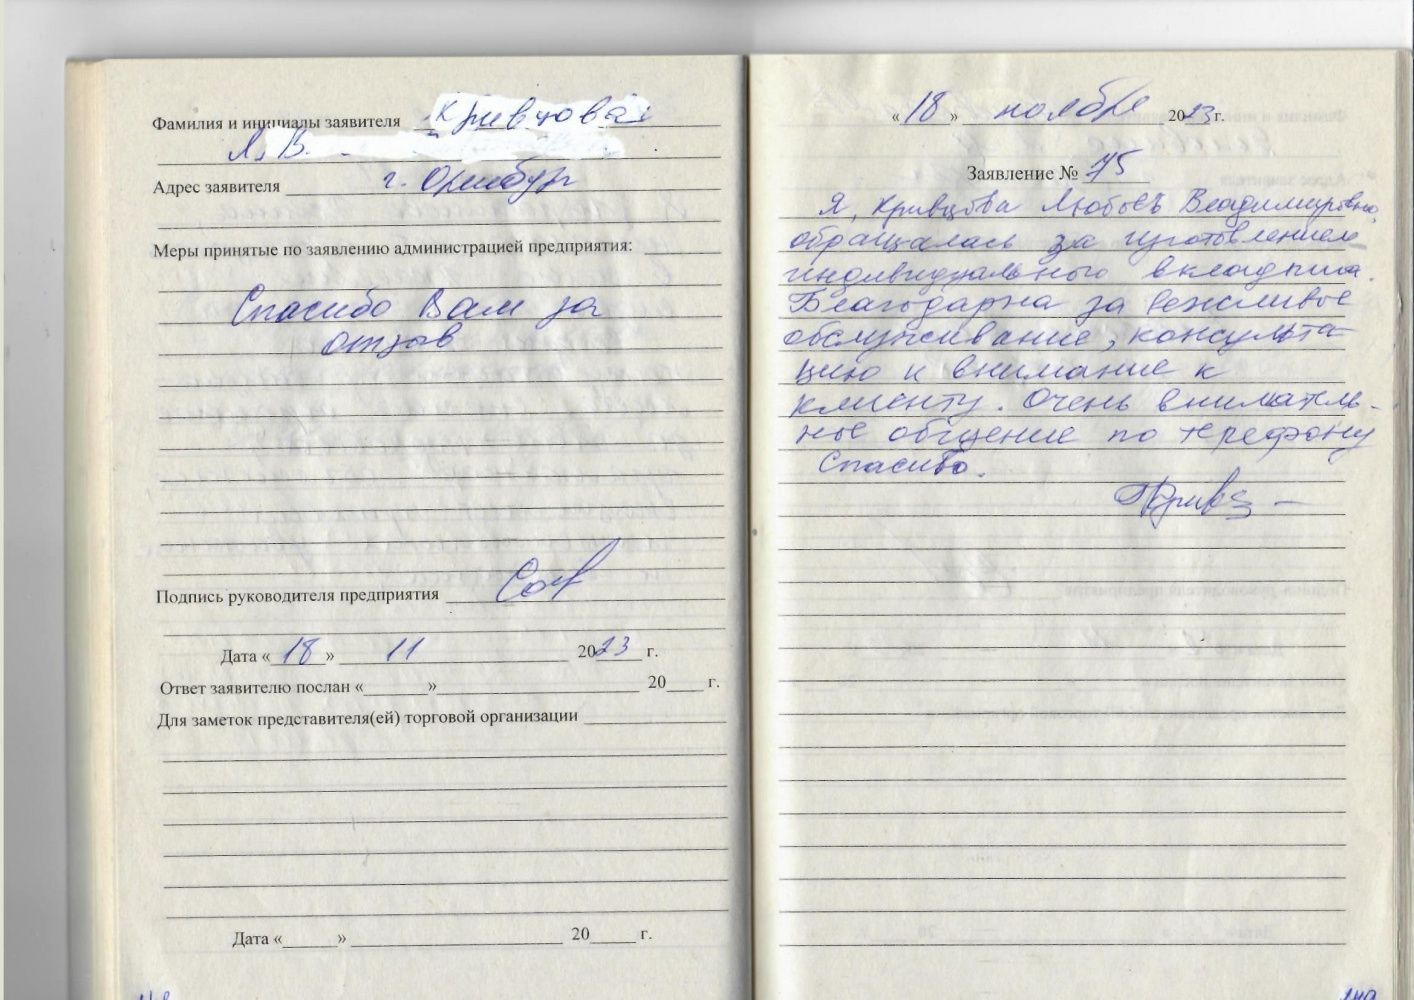 Фамилия и инициалы заявителя Кривцова
Л. В.
Адрес заявителя г. Оренбург
Меры принятые по заявлению администрацией предприятия:
Спасибо Вам за
отзыв
Подпись руководителя предприятия
Дата «18» 11 2023 г.
Ответ заявителю послан «______»__________ 20____ г.
Для заметок представителя(ей) торговой организации
Дата «______» __________ 20_____ г.
«18» ноября 2023 г.
Заявление № 75
Я, Кривцова Любовь Владимировна,
обращалась за изготовлением
индивидуального вкладыша.
Благодарна за вежливое
обслуживание, консульта-
цию и внимание к
клиенту. Очень вниматель-
ное общение по телефону
Спасибо.